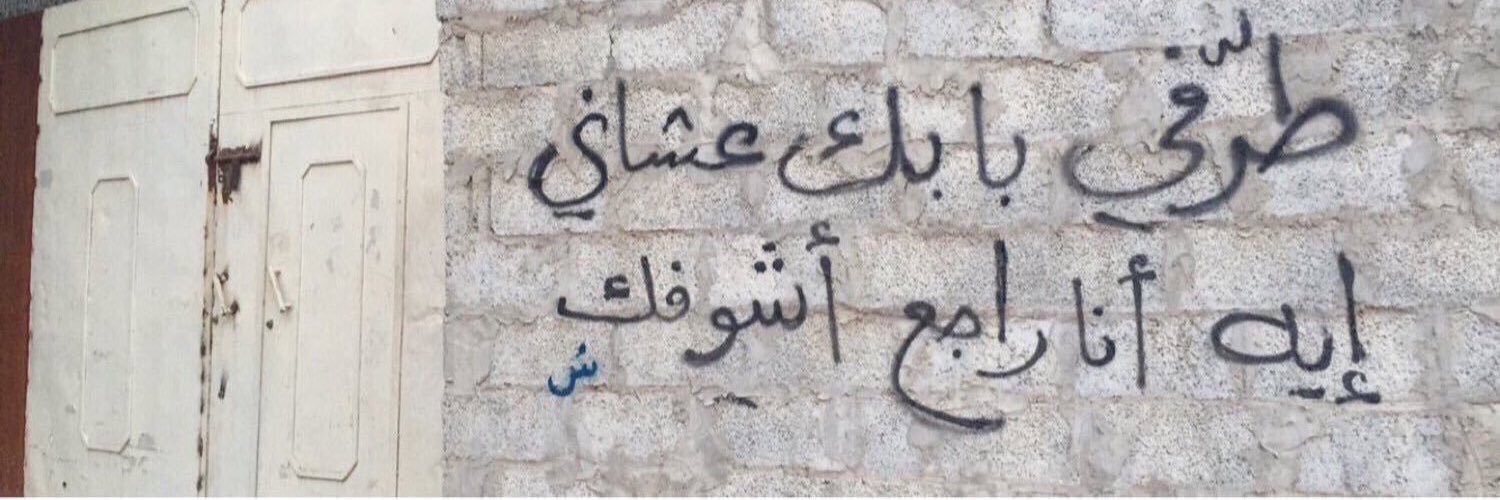 طرّفي بابك عشاني
إيه أنا راجع أشوفك
ش